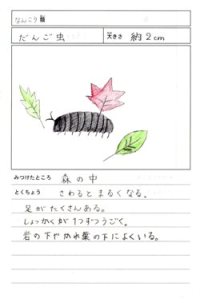 だんご虫 大きさ 約2cm
みつけたところ 森の中
とくちょう さわるとまるくなる。
足がたくさんある。
しょっかくが うごく。
岩の下や かれ葉の下によくいる。